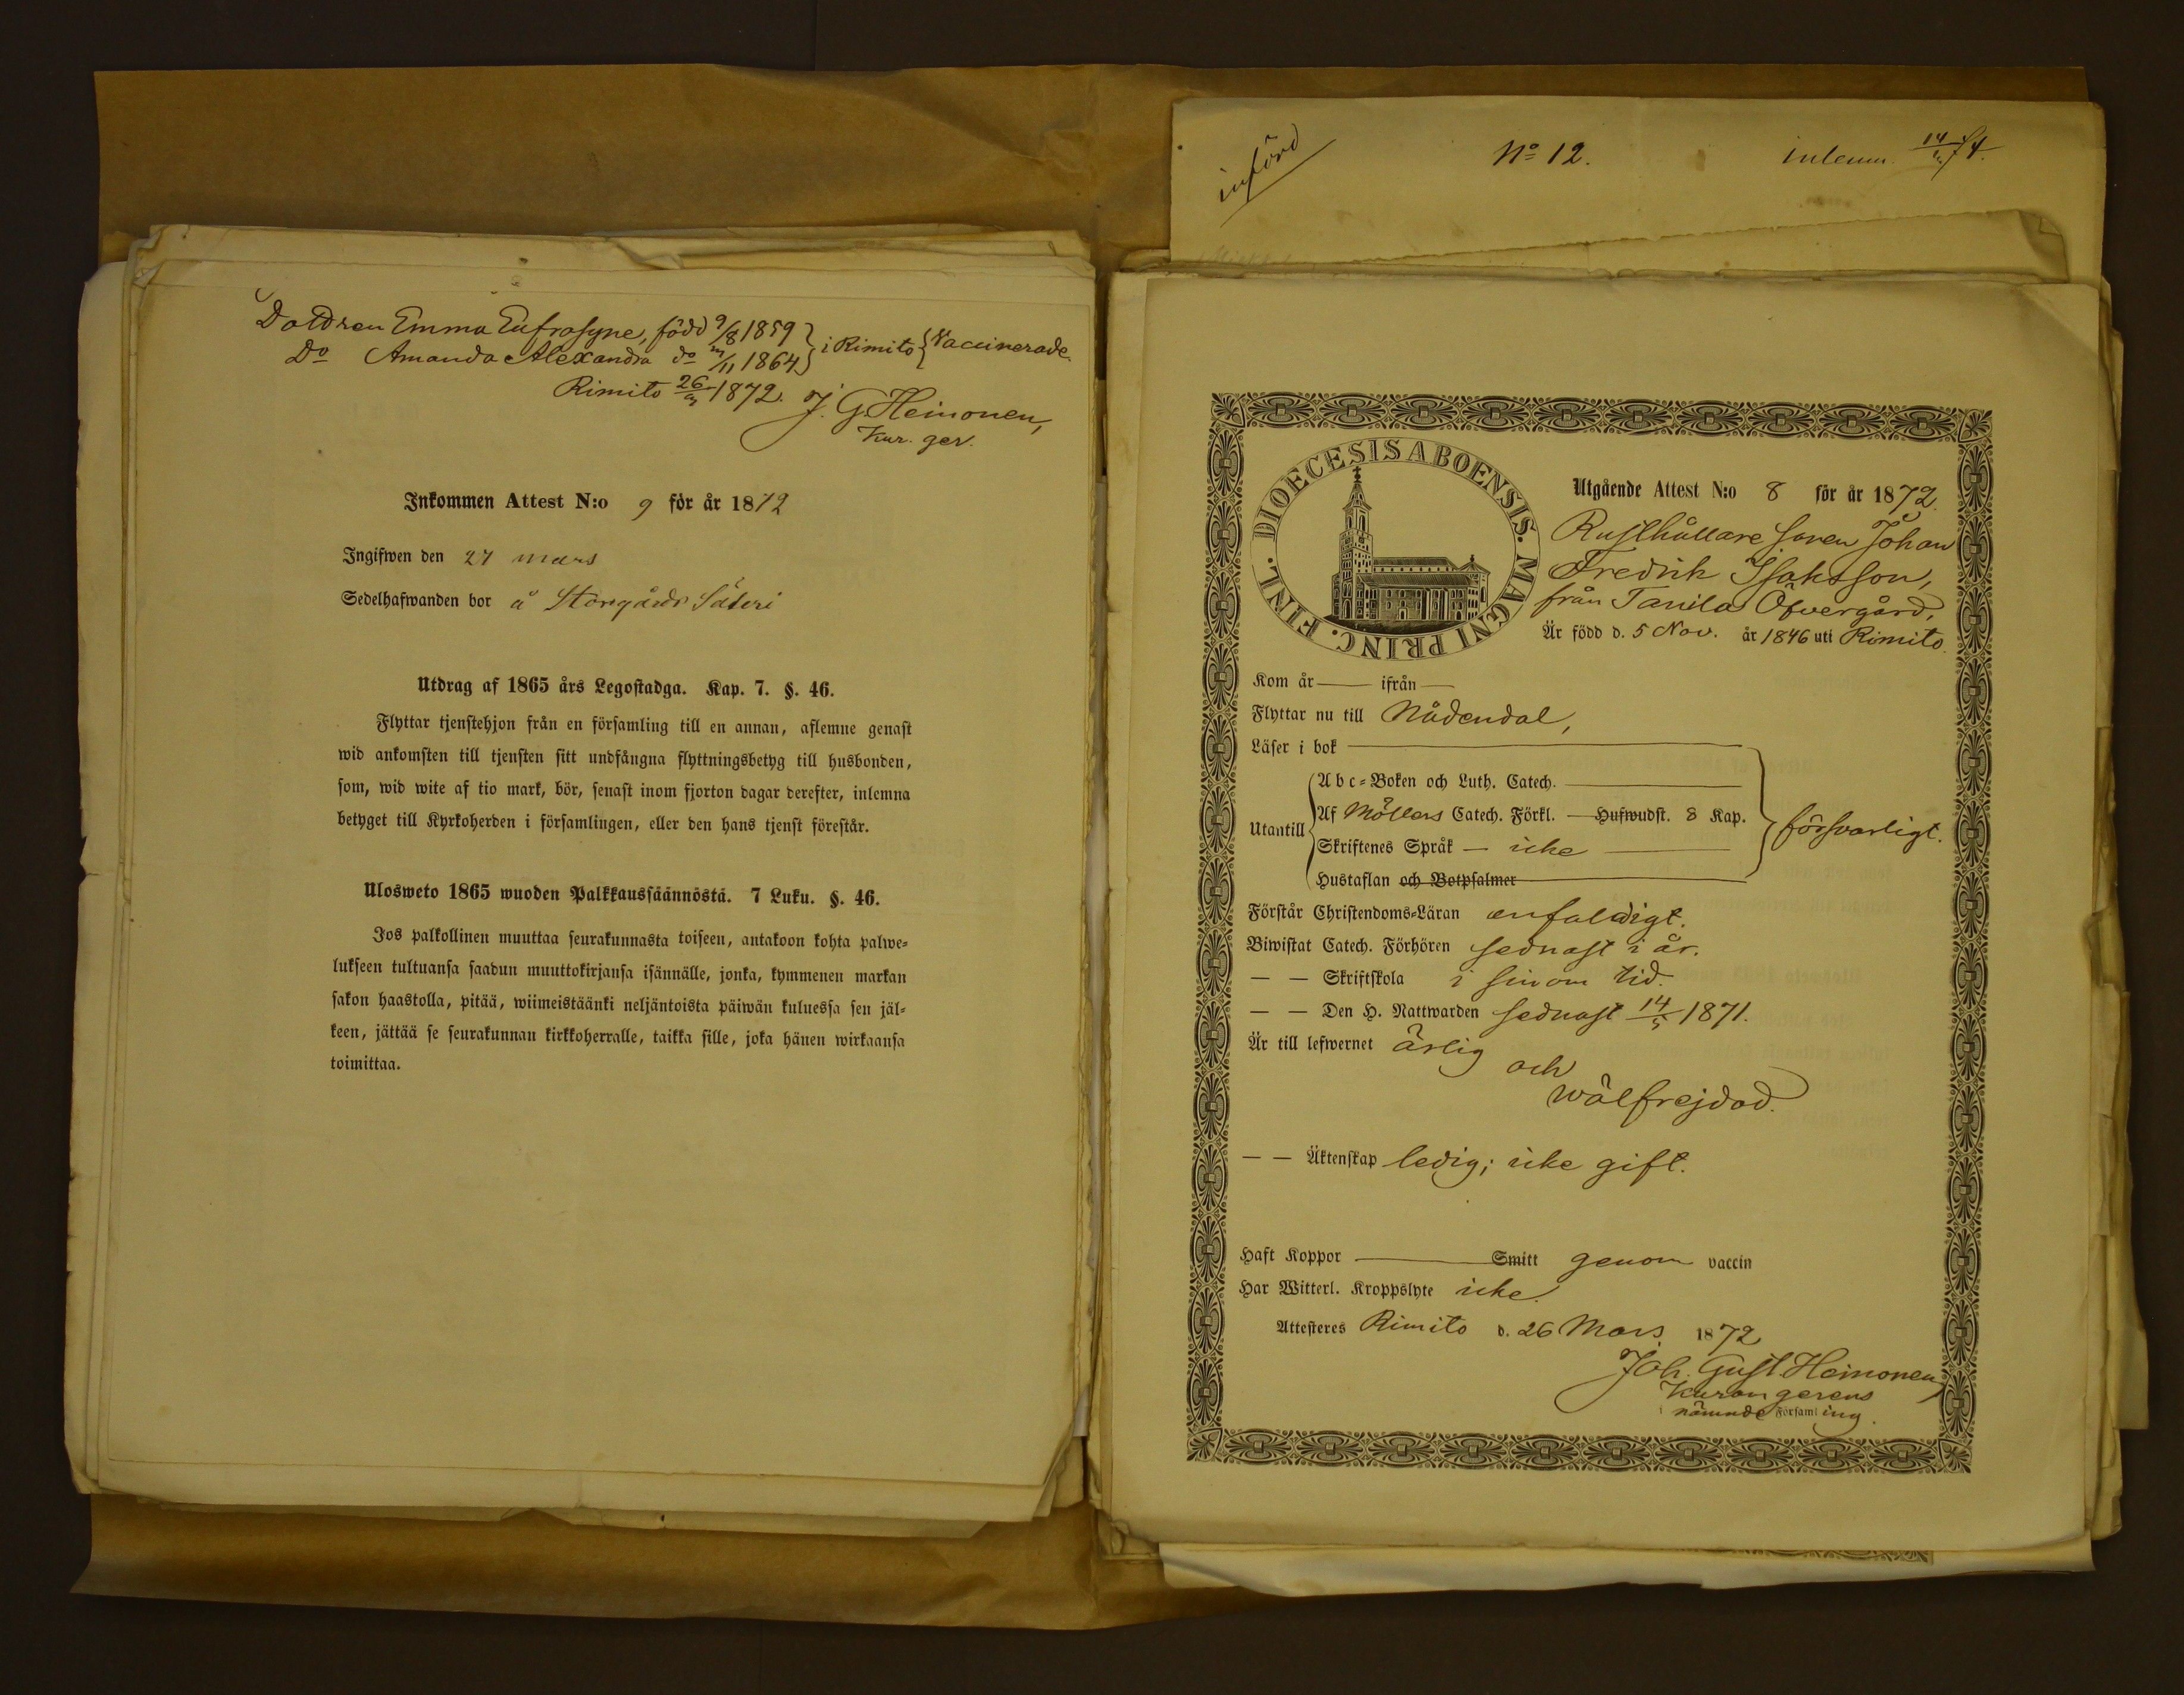 Dottren Emma Eufrosyne, född 9/8 1859 } i Rimito { Vaccinerade.
Do Amanda Alexandra do /11 1864
Rimito 26/3 1872. J. G. Heinonen,
Kur. ger.
Inkommen Attest N:o 9 för år 1872
Ingifwen den 27 mars
Sedelhafwanden bor å Storgårds Säteri
Utdrag af 1865 års Legostadga. Kap. 7. §. 46.
Flyttar tjenstehjon från en församling till en annan, aflemne genast
wid ankomsten till tjensten sitt undfångna flyttningsbetyg till husbonden,
som, wid wite af tio mark, bör, senast inom fjorton dagar derefter, inlemna
betyget till Kyrkoherden i församlingen, eller den hans tjenst förestår.
Ulosweto 1865 wuoden Palkkaussäännöstä. 7 Luku. §. 46.
Jos palkollinen muuttaa seurakunnasta toiseen, antakoon kohta palwe=
lukseen tultuansa saadun muuttokirjansa isännälle, jonka, kymmenen markan
sakon haastolla, pitää, wiimeistäänki neljäntoista päiwän kuluessa sen jäl=
keen, jättää se seurakunnan kirkkoherralle, taikka sille, joka hänen wirkaansa
toimittaa.
införd No 12. inlemn. 14/ 74.
DIOECESIS ABOENSIS. MAGNI PRINC. FINL.
Utgående Attest N:o 8 för år 1872.
Rusthållare sonen Johan
Fredrik Isaksson,
från Tanila Öfvergård,
Är född d. 5 Nov. år 1846 uti Rimito.
Kom år — ifrån —
Flyttar nu till Nådendal,
Läser i bok
Utantill
Abc=Boken och Luth. Catech.
Af Möllers Catech. Förkl. — Hufwudst. 8 Kap.
försvarligt.
Skriftenes Språk — icke
Hustaflan och Botpsalmer
Förstår Christendoms=Läran enfaldigt.
Biwistat Catech. Förhören sednast i år.
— — Skriftskola i sinom tid.
— — Den H. Nattwarden sednast 14/5 1871.
Är till lefwernet ärlig
och
wälfrejdad.
— — Äktenskap ledig; icke gift.
Haft Koppor — Smitt genom vaccin
Har Witterl. Kroppslyte icke.
Attesteres Rimito d. 26 Mars 1872
Joh. Gust. Heinonen,
Kuram gerens
i nämnde Församling.